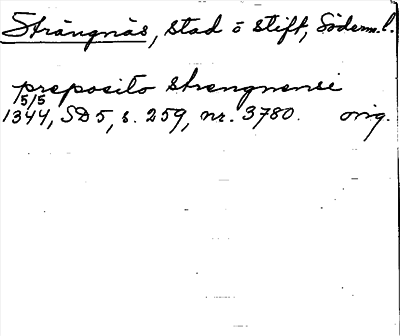 Strängnäs, stad o stift, Söderm.l.
preposito strengnensi
5/5
1344, SD5, s. 259, nr. 3780. orig.